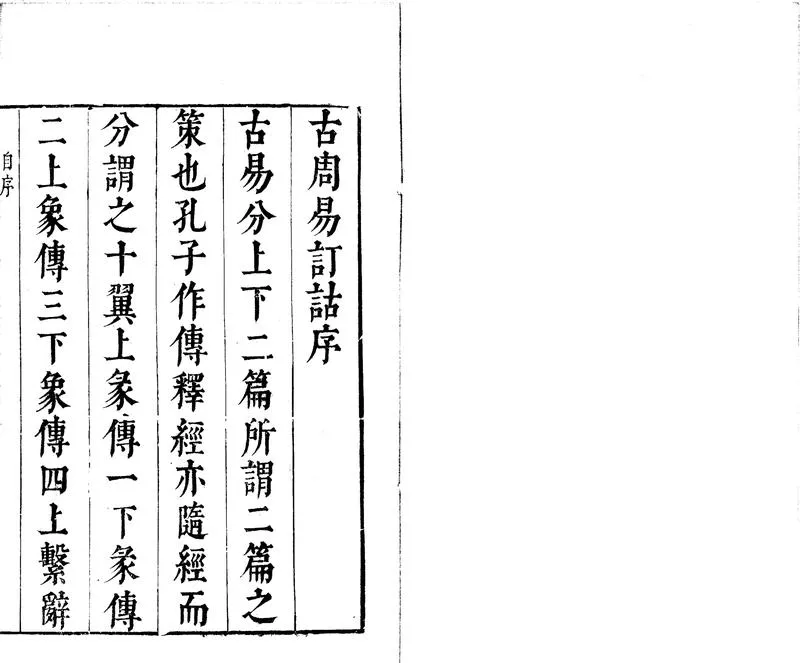 古周易訂詁序
古易分上下二篇所謂二篇之
策也孔子作傳釋經亦隨經而
分謂之十翼上彖傳一下彖傳
二上象傳三下象傳四上繫辭
自序